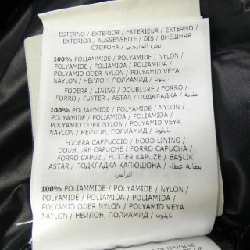 ESTERNO / EXTERIOR / EXTERIEUR / EXTERNO /
EXTERIOR / AUSSENSEITE / DIS / ВНЕШНЯЯ
СТОРОНА /
100% POLIAMMIDE / POLYAMIDE / NYLON /
POLYAMIDE / POLIAMIDA / POLIAMIDA /
POLYAMID ODER NYLON / POLYAMID VEYA
NAYLON / НЕЙЛОН, ПОЛИАМИД / نايلون
FODERA / LINING / DOUBLURE / FORRO /
FORRO / FUTTER / ASTAR / ПОДКЛАДКА /
100% POLIAMMIDE / POLYAMIDE / NYLON /
POLYAMIDE / POLIAMIDA / POLIAMIDA /
POLYAMID ODER NYLON / POLYAMID VEYA
NAYLON / НЕЙЛОН, ПОЛИАМИД / نايلون
FODERA CAPPUCCIO / HOOD LINING /
DOUBLURE CAPUCHE / FORRO CAPUCHA /
FORRO CAPUZ / FUTTER KAPUZE / BAŞLIK
ASTAR / ПОДКЛАДКА КАПЮШОНА /
100% POLIAMMIDE / POLYAMIDE / NYLON /
POLYAMIDE / POLIAMIDA / POLIAMIDA /
POLYAMID ODER NYLON / POLYAMID VEYA
NAYLON / НЕЙЛОН, ПОЛИАМИД / نايلون